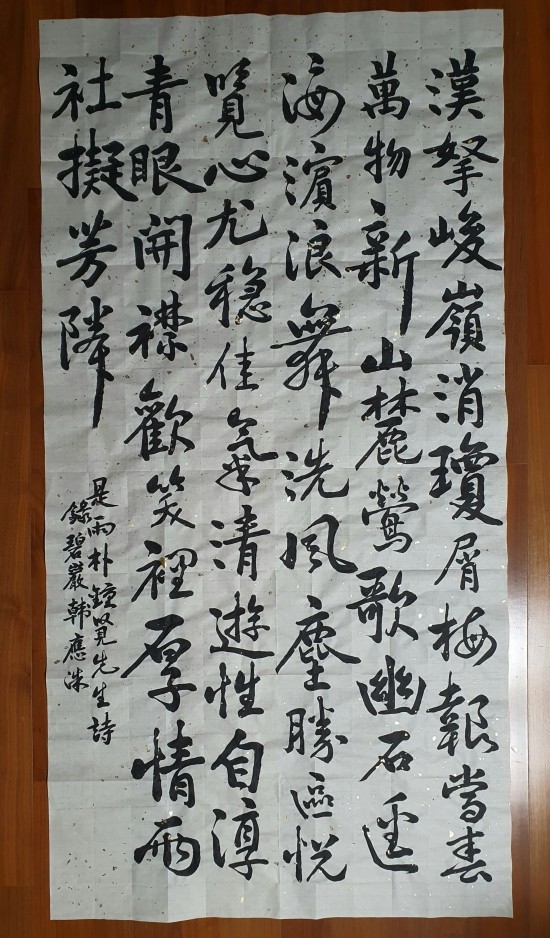 漢拏峻嶺消瓊屑梅報當春
萬物新山麓鶯歌幽石逕
海濱浪舞洗風塵勝區悅
覽心尤穩佳氣清遊性自淳
青眼開襟歡笑裡厚情兩
社擬芳隣
是雨朴鐘先生詩
錄碧巖韓應洙